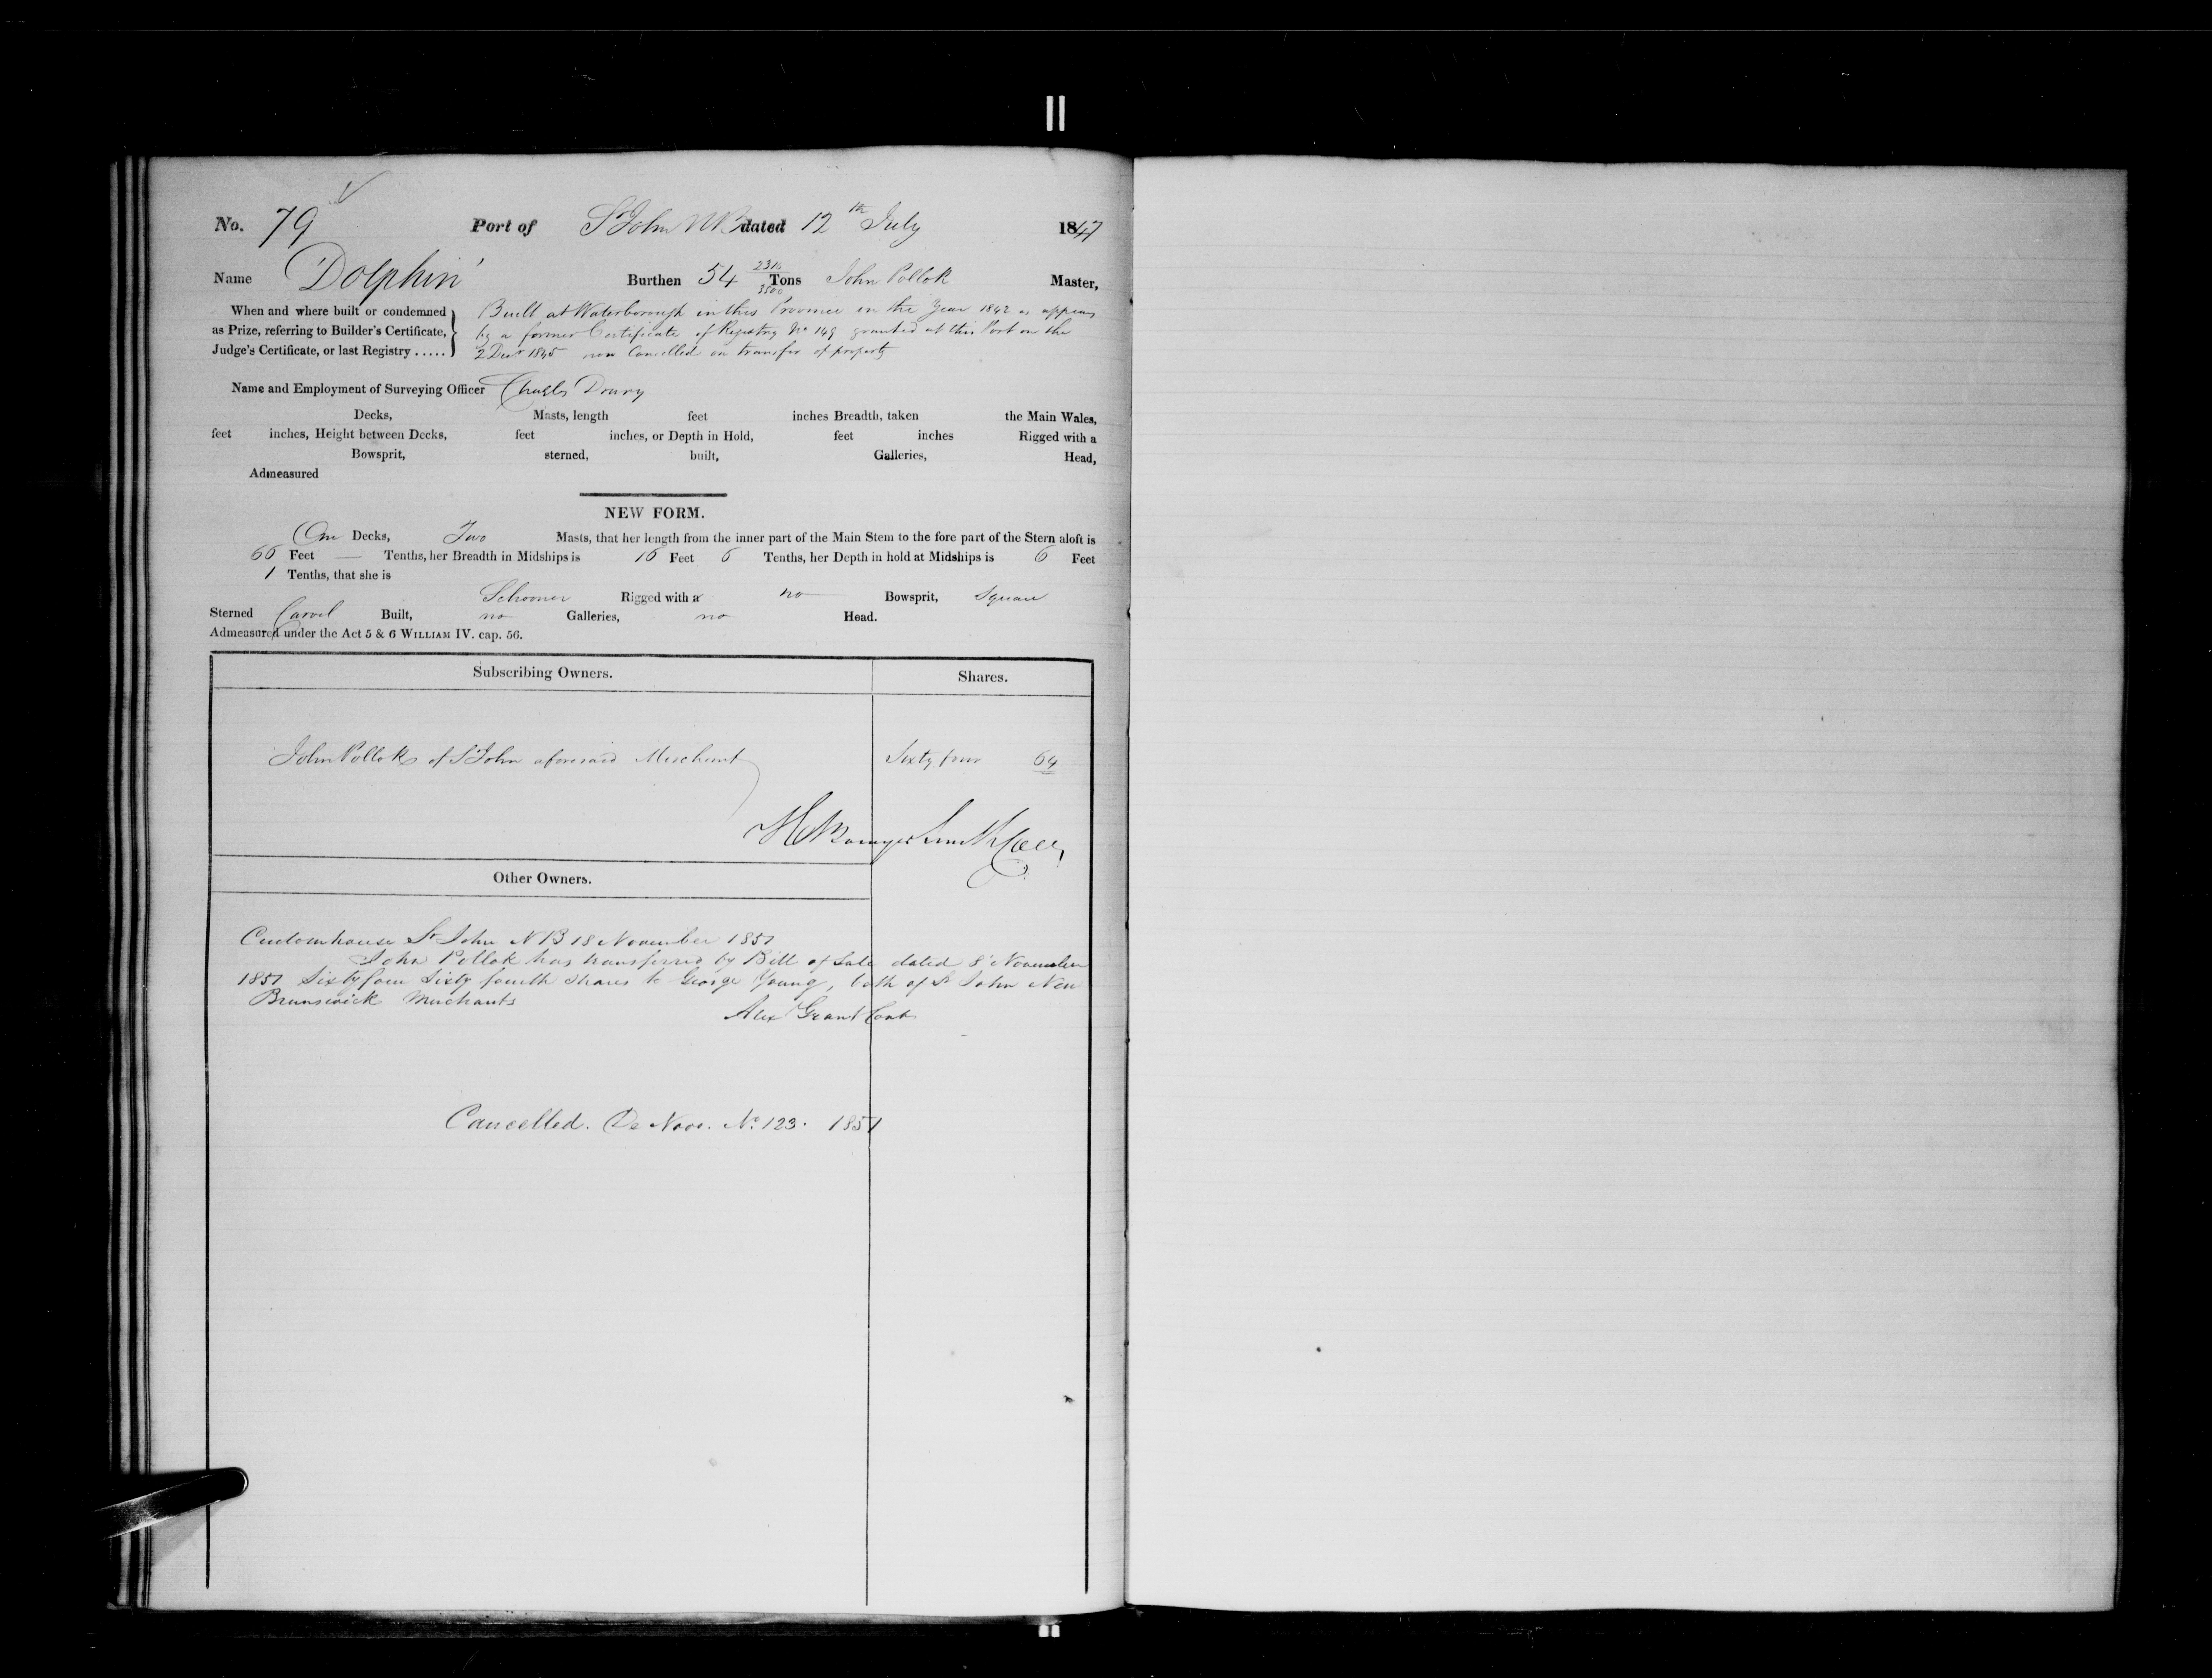 No. 79 Port of St John NB dated 12th July 1847
Name 'Dolphin' Burthen 54 2310/3500 Tons John Pollok Master,
When and where built or condemned as Prize, referring to Builder's Certificate, Judge's Certificate, or last Registry .....
Built at Waterborough in this Province in the Year 1842 as appears
by a former Certificate of Registry No 149 granted at this Port on the
2 Decr 1845 now Cancelled on transfer of property
Name and Employment of Surveying Officer Charles Drury
Decks, Masts, length feet inches Breadth, taken the Main Wales,
feet inches, Height between Decks, feet inches, or Depth in Hold, feet inches Rigged with a
Bowsprit, sterned, built, Galleries, Head,
Admeasured
NEW FORM.
One Decks, Two Masts, that her length from the inner part of the Main Stem to the fore part of the Stern aloft is
60 Feet — Tenths, her Breadth in Midships is 16 Feet 6 Tenths, her Depth in hold at Midships is 6 Feet
1 Tenths, that she is
Schooner Rigged with a no Bowsprit, Square
Sterned Carvel Built, no Galleries, no Head.
Admeasured under the Act 5 & 6 WILLIAM IV. cap. 56.
Subscribing Owners. Shares.
John Pollok of St John aforesaid Merchant Sixty four 64
Other Owners.
Customhouse St John N B 18 November 1851
John Pollok has transferred by Bill of Sale dated 8th November
1851 Sixtyfour Sixty fourth Shares to George Young, both of St John New
Brunswick Merchants
Alex Grant Cont
Cancelled. De Novo. No. 123. 1851